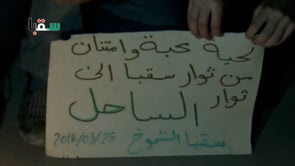 سقبا
تحية محبة وامتنان
من ثوار سقبا الى
ثوار الساحل
سقبا الشموخ
2014/03/25